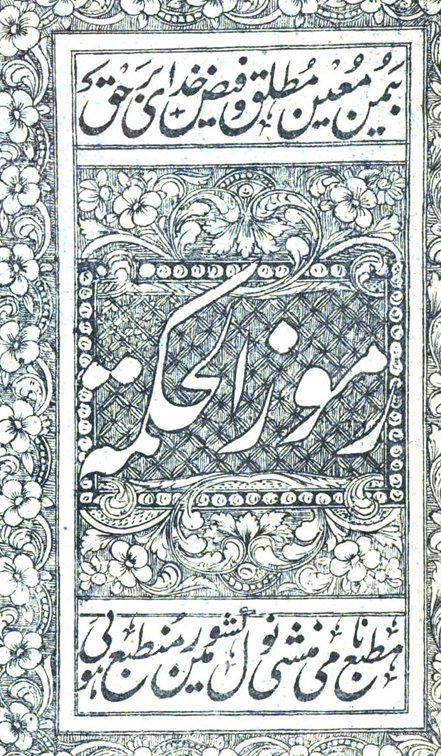 بیُمن مُعین مُطلق و فیض خدای برحق
رموز الحکمة
مطبع نامی منشی نولکشور مین منطبع ہوئی